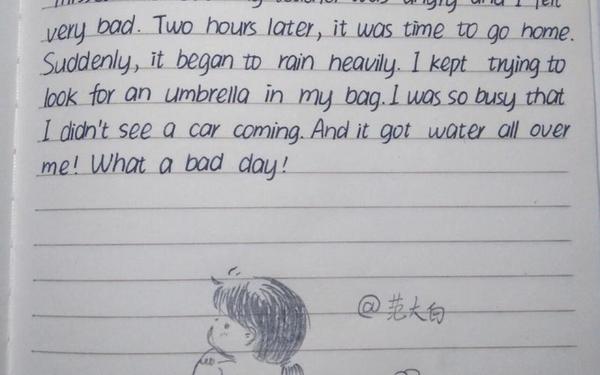 teacher was angry and I felt
very bad. Two hours later, it was time to go home.
Suddenly, it began to rain heavily. I kept trying to
look for an umbrella in my bag. I was so busy that
I didn't see a car coming. And it got water all over
me! What a bad day!
@范大白